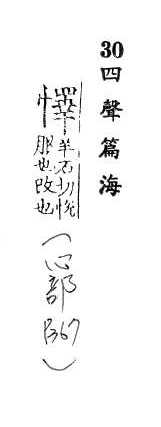 30四聲篇海
懌 羊石切悅
服也改也
(心部
P367)